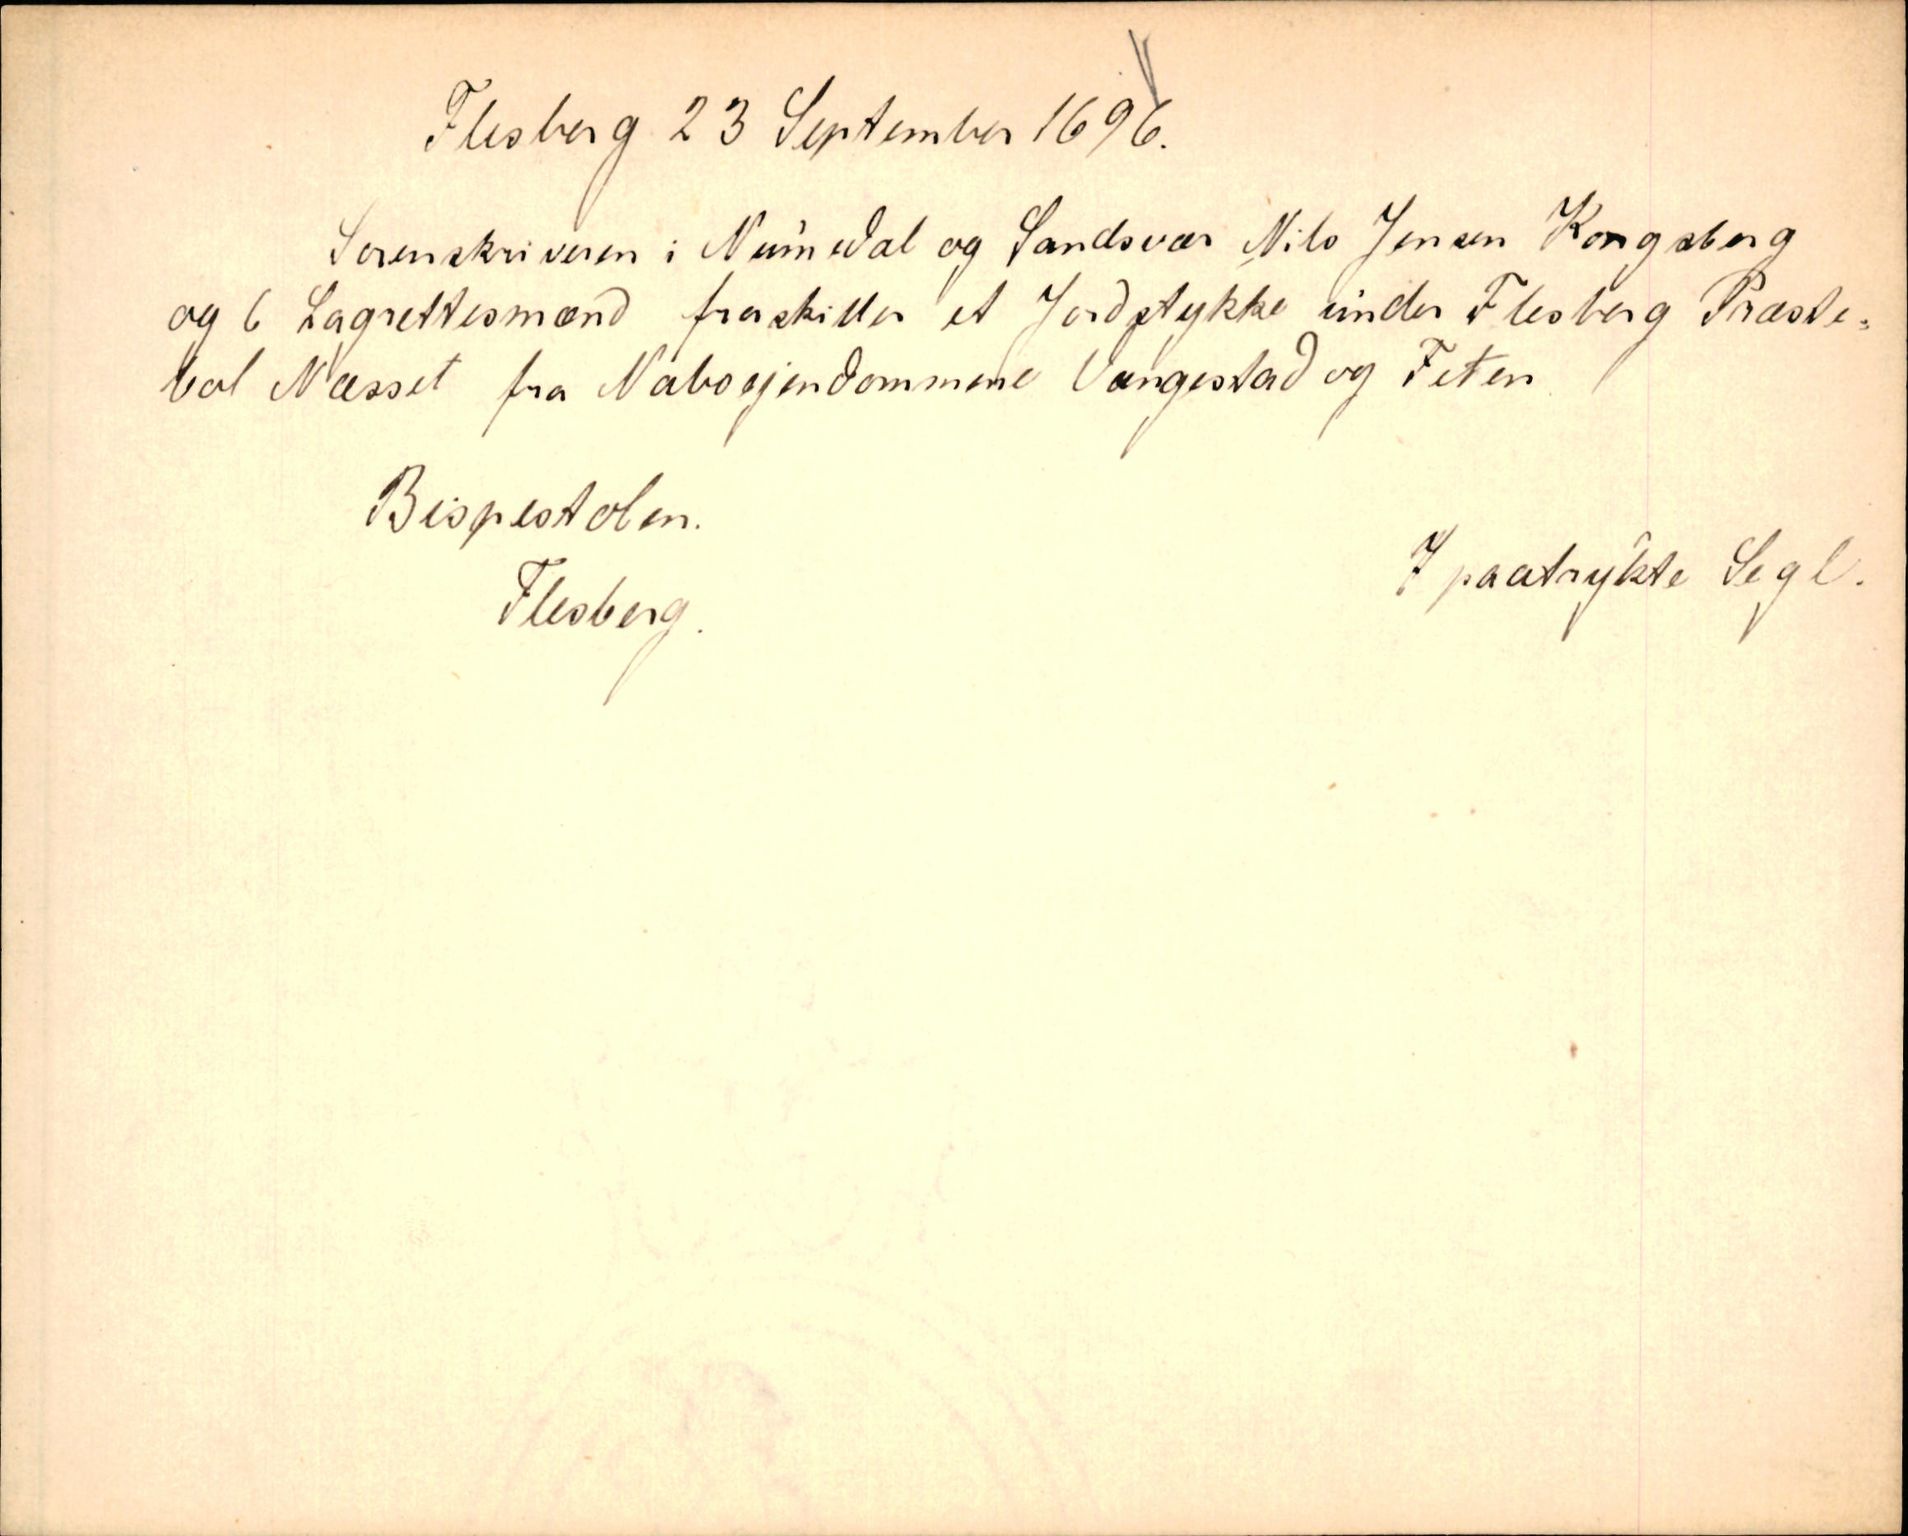 Flesberg 23 September 1696.
Sorenskriveren i Numedal og Sandsvær Nils Jensen Kongsberg
og 6 Lagrettesmænd fraskiller et Jordstykke under Flesberg Præste-
bol Næsset fra Naboejendommene Vangestad og Feten
Bispestolen.
7 paatrykte Segl.
Flesberg.